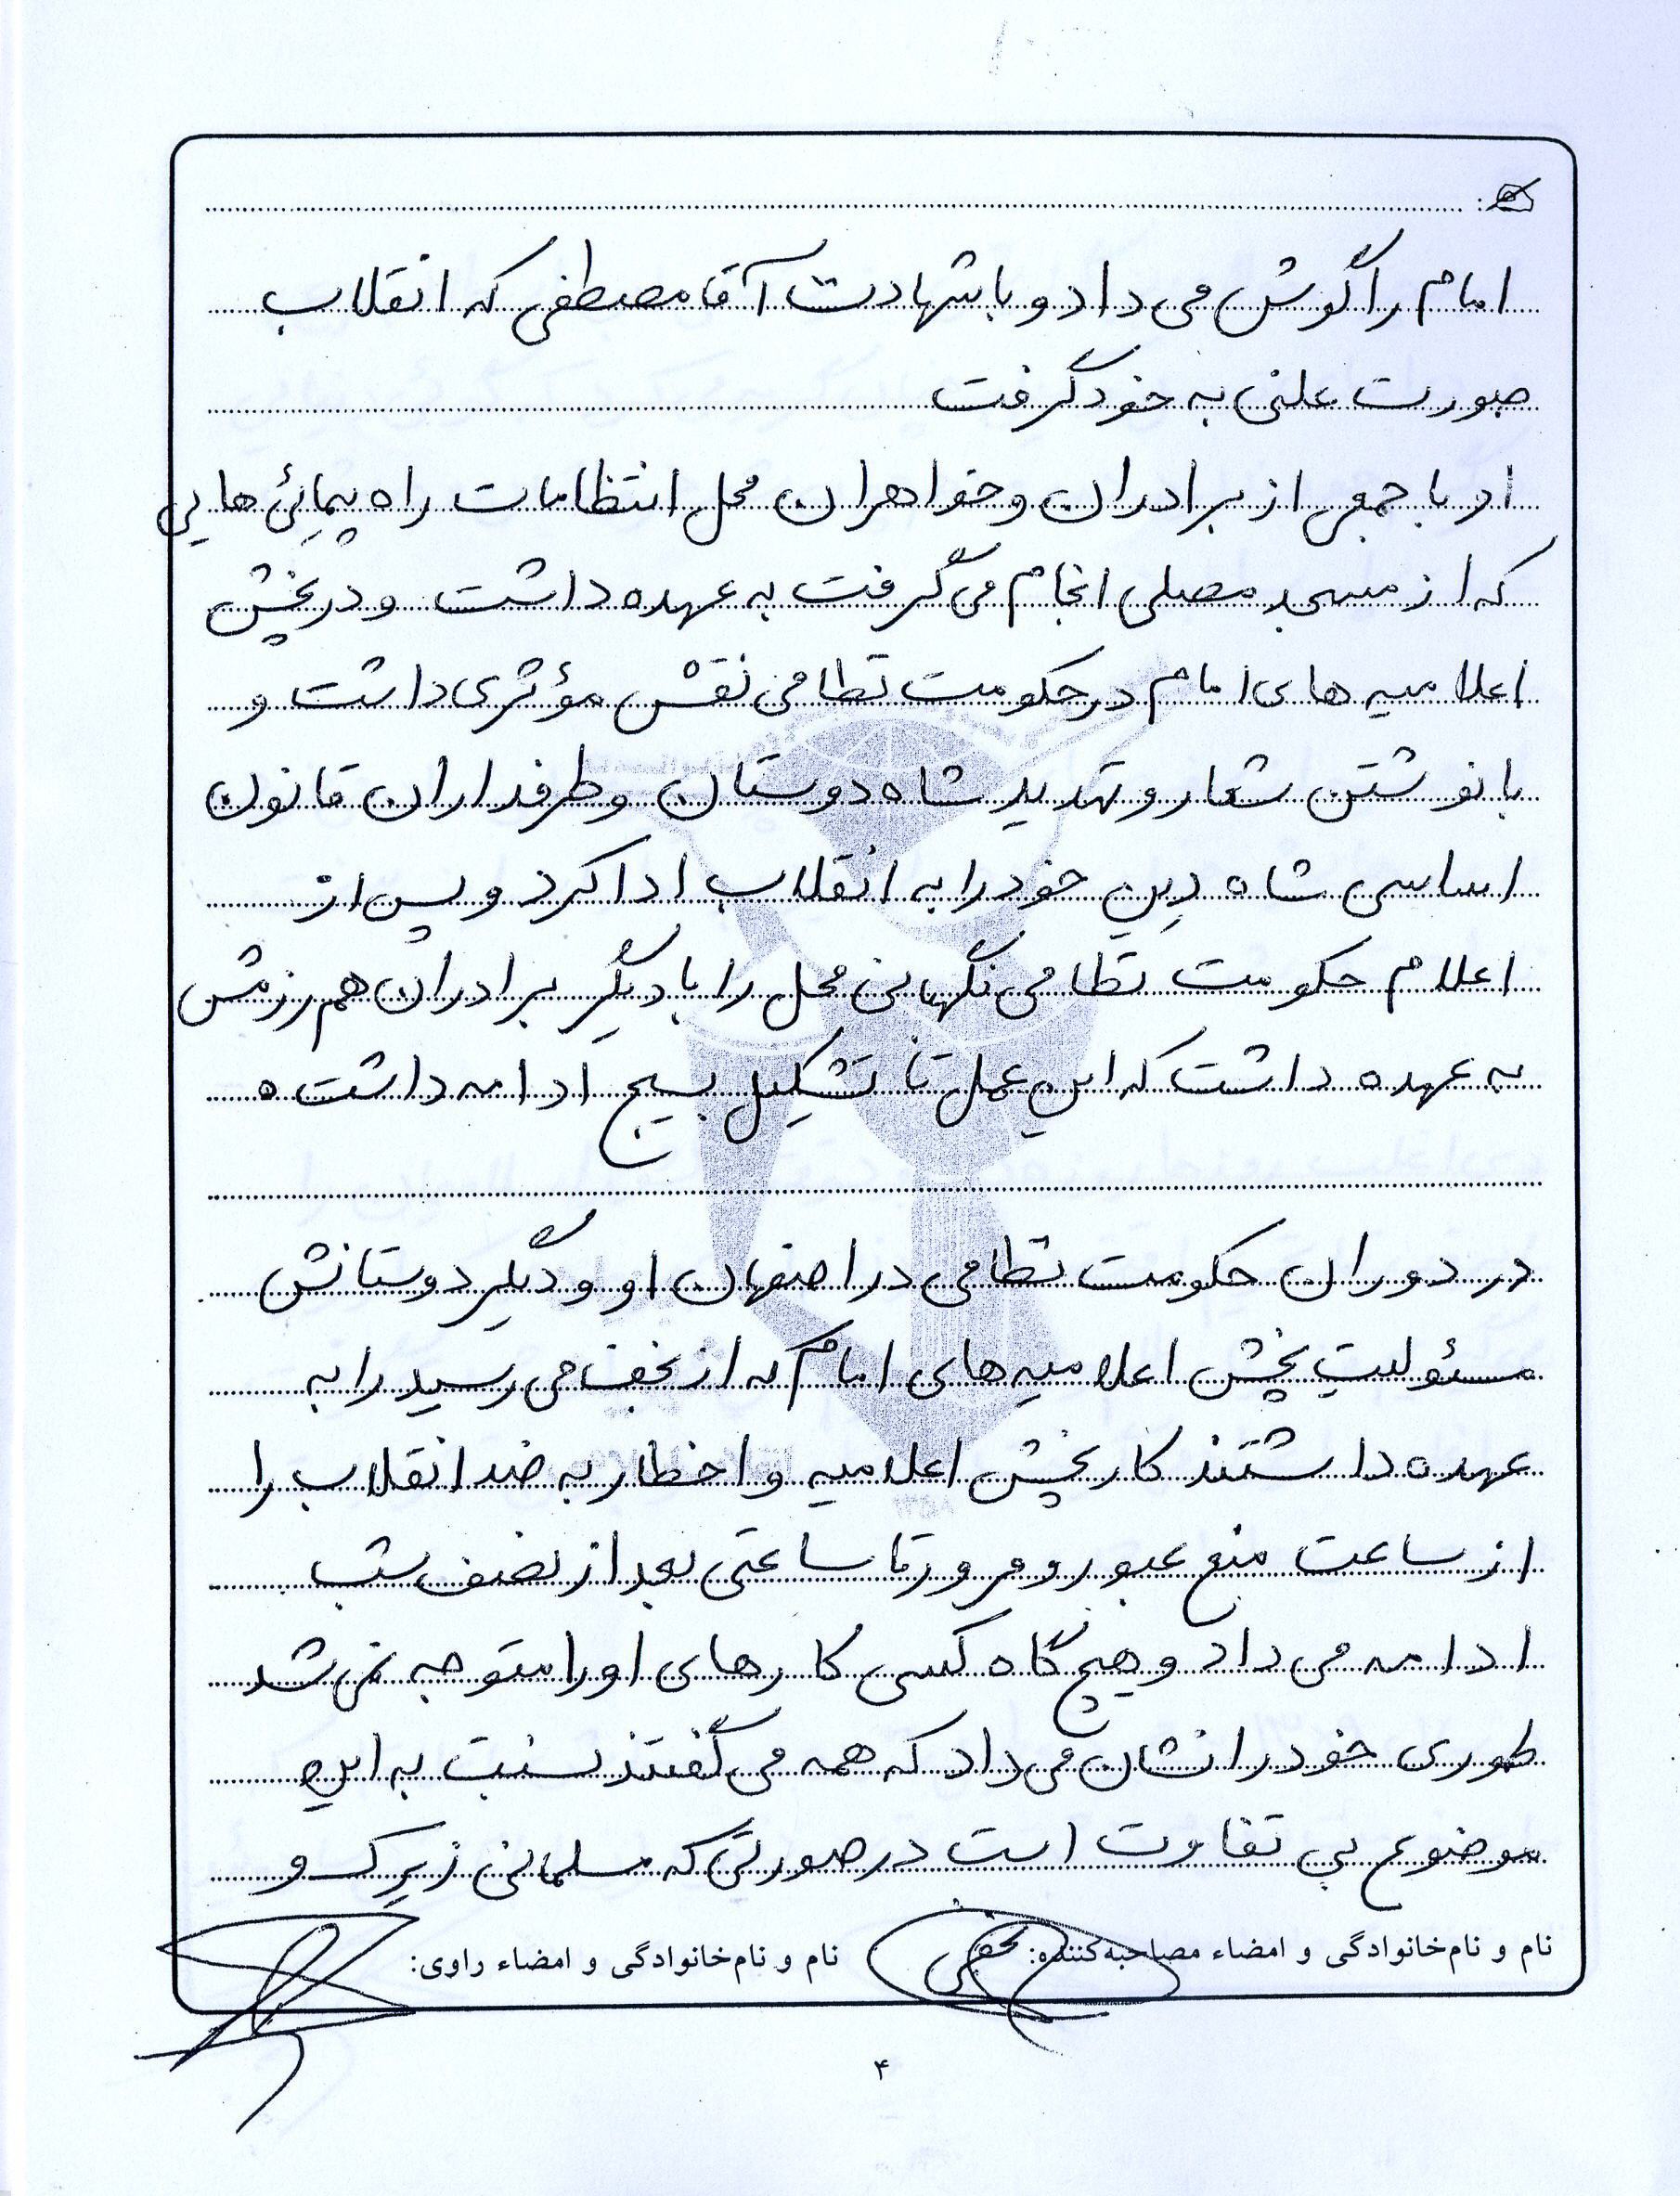 امام را گوش می داد و با شهادت آقا مصطفی که انقلاب
صورت علنی به خود گرفت
او با جمعی از برادران و خواهران محل انتظامات راه پیمائی هایی
که از مسجد مصلی انجام می گرفت به عهده داشت و در پخش
اعلامیه های امام در حکومت نظامی نقش مؤثری داشت و
با نوشتن شعار و تهدید شاه دوستان و طرفداران قانون
اساسی شاه دِین خود را به انقلاب ادا کرد و پس از
اعلام حکومت نظامی نگهبانی محل را با دیگر برادران هم رزمش
به عهده داشت که این عمل تا تشکیل بسیج ادامه داشت ه
در دوران حکومت نظامی در اصفهان او و دیگر دوستانش
مسئولیت پخش اعلامیه های امام که از نجف می رسید را به
عهده داشتند کار پخش اعلامیه و اخطار به ضد انقلاب را
از ساعت منع عبور و مرور تا ساعتی بعد از نصف شب
ادامه می داد و هیچ گاه کسی کارهای او را متوجه نمی شد
طوری خود را نشان می داد که همه می گفتند نسبت به این
موضوع بی تفاوت است در صورتی که مسلمانی زیرک و
نام و نام‌خانوادگی و امضاء مصاحبه‌کننده: نام و نام‌خانوادگی و امضاء راوی:
۴